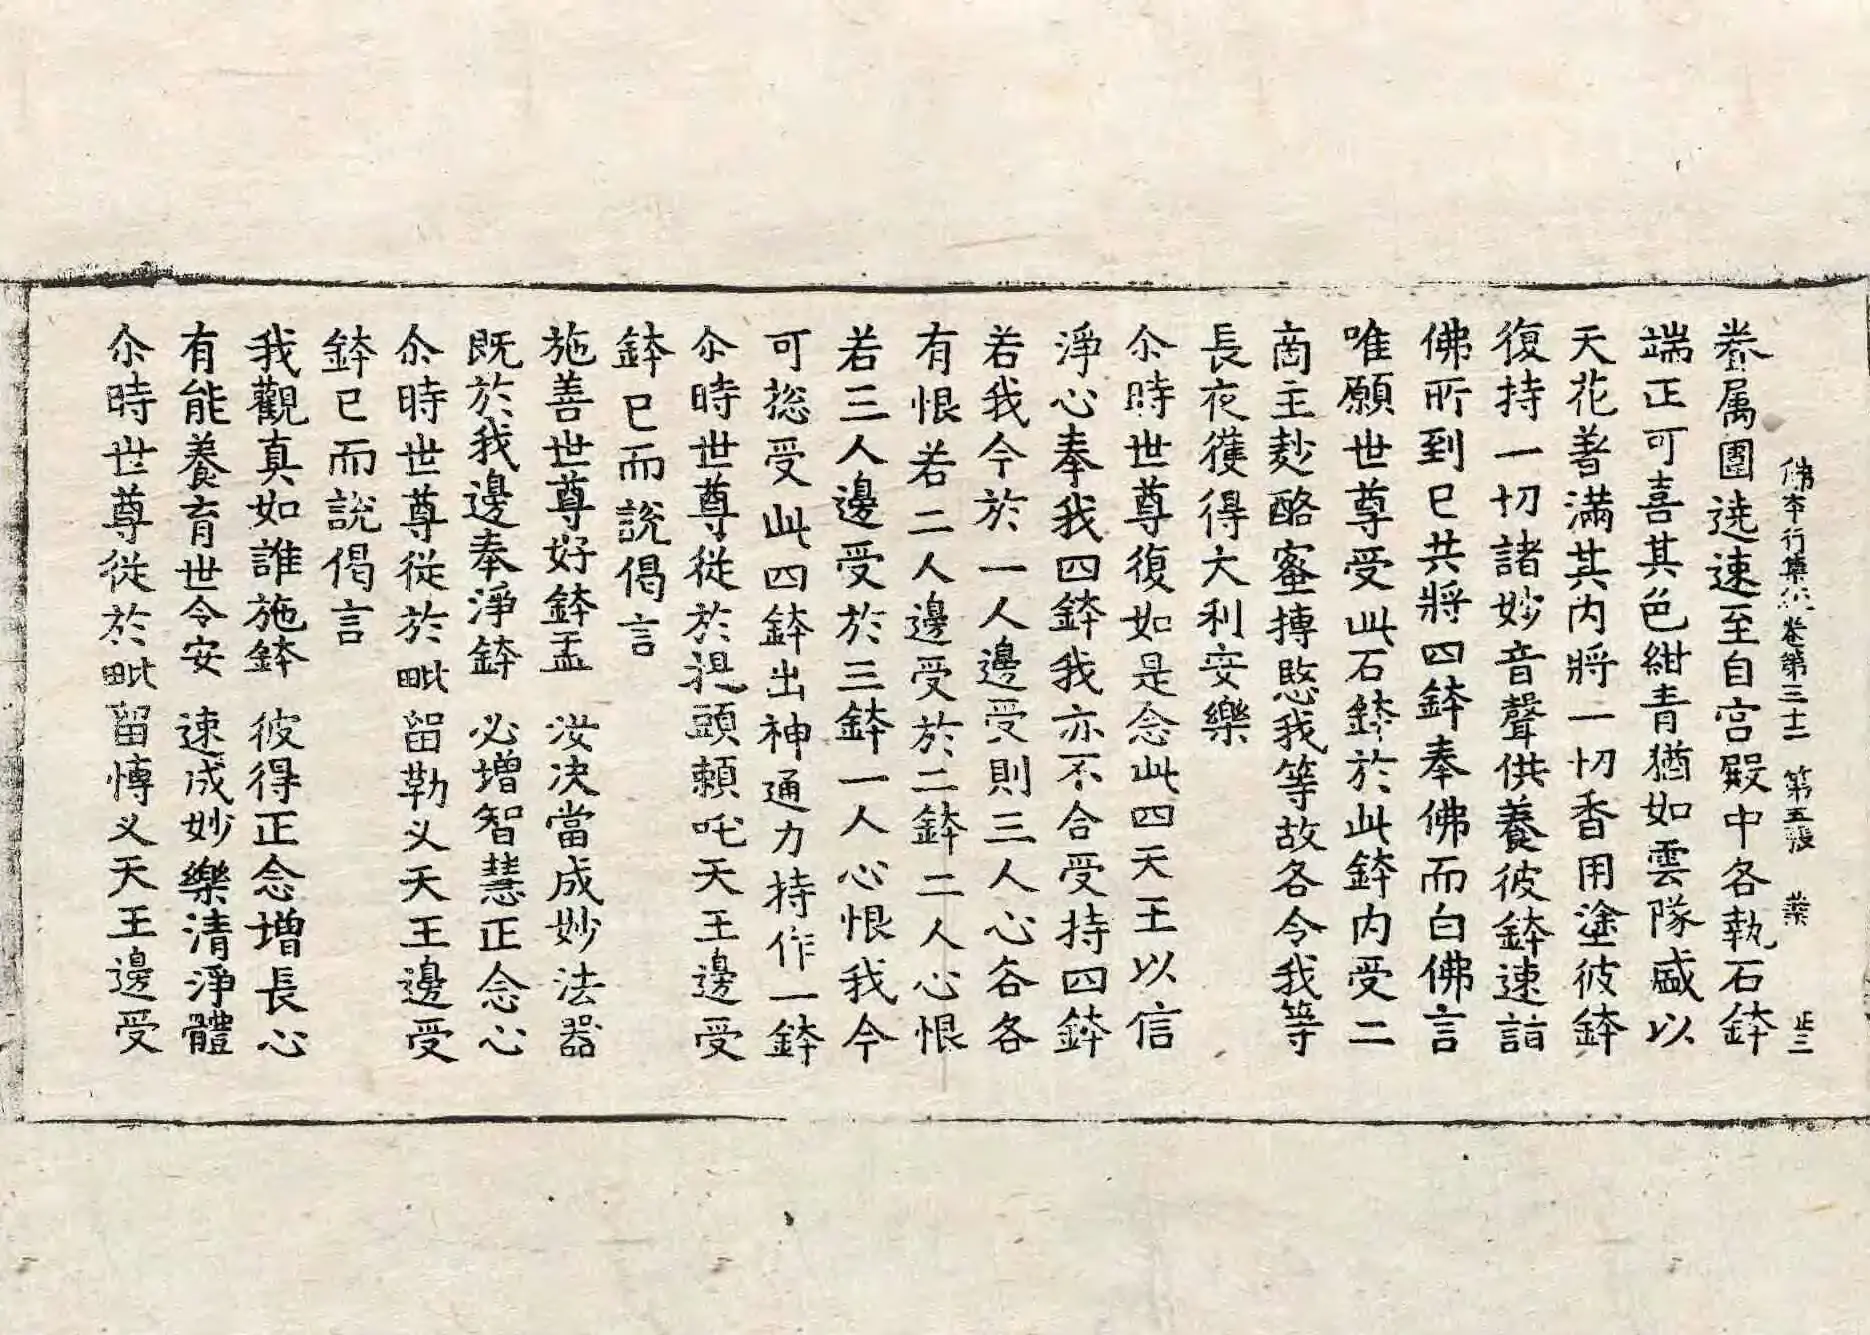 佛本行集經卷第三十二 第五張 業
眷属圍遶速至自宫殿中各執石鉢
端正可喜其色紺青猶如雲隊盛以
天花著滿其内將一切香用塗彼鉢
復持一切諸妙音聲供養彼鉢速詣
佛所到已共將四鉢奉佛而白佛言
唯願世尊受此石鉢於此鉢内受二
商主麨酪蜜摶愍我等故各令我等
長夜獲得大利安樂
尒時世尊復如是念此四天王以信
淨心奉我四鉢我亦不合受持四鉢
若我今於一人邊受則三人心各各
有恨若二人邊受於二鉢二人心恨
若三人邊受於三鉢一人心恨我今
可揔受此四鉢出神通力持作一鉢
尒時世尊從於提頭頼吒天王邊受
鉢已而說偈言
施善世尊好鉢盂 汝决當成妙法器
既於我邊奉淨鉢 必增智慧正念心
尒時世尊從於毗留勒叉天王邊受
鉢已而說偈言
我觀真如誰施鉢 彼得正念增長心
有能養育世令安 速成妙樂清淨體
尒時世尊從於毗留博叉天王邊受